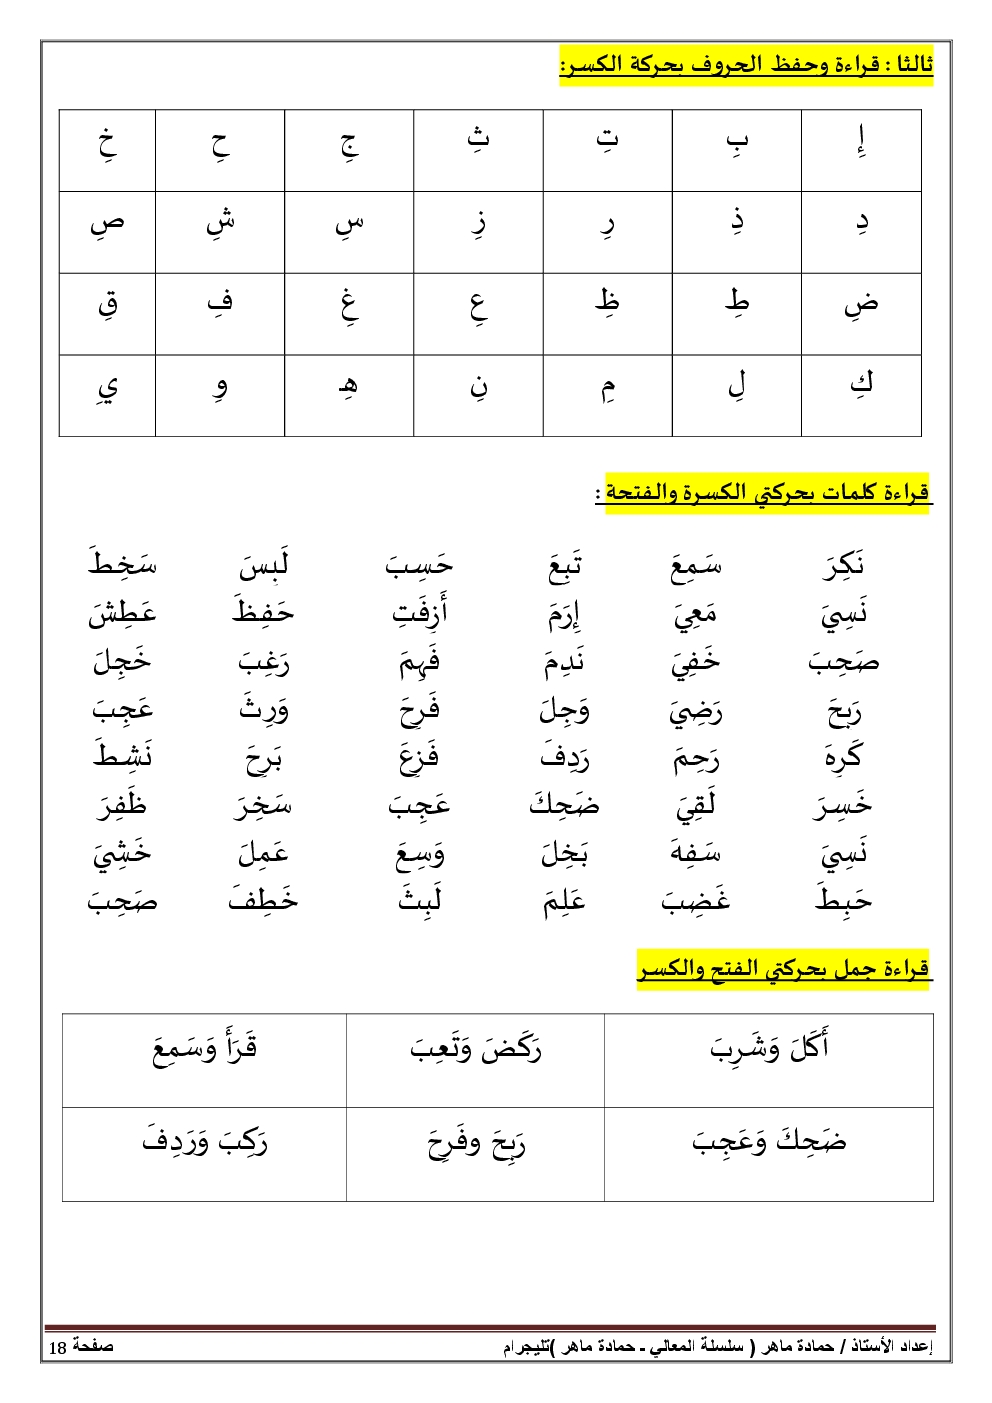 ثالثا : قراءة وحفظ الحروف بحركة الكسر:
إِ بِ تِ ثِ جِ حِ خِ
دِ ذِ رِ زِ سِ شِ صِ
ضِ طِ ظِ عِ غِ فِ قِ
كِ لِ مِ نِ هِ وِ يِ
قراءة كلمات بحركتي الكسرة والفتحة :
نَكِرَ سَمِعَ تَبِعَ حَسِبَ لَبِسَ سَخِطَ
نَسِيَ مَعِيَ إِرَمَ أَزِفَتِ حَفِظَ عَطِشَ
صَحِبَ خَفِيَ نَدِمَ فَهِمَ رَغِبَ خَجِلَ
رَبِحَ رَضِيَ وَجِلَ فَرِحَ وَرِثَ عَجِبَ
كَرِهَ رَحِمَ رَدِفَ فَزِعَ بَرِحَ نَشِطَ
خَسِرَ لَقِيَ ضَحِكَ عَجِبَ سَخِرَ ظَفِرَ
نَسِيَ سَفِهَ بَخِلَ وَسِعَ عَمِلَ خَشِيَ
حَبِطَ غَضِبَ عَلِمَ لَبِثَ خَطِفَ صَحِبَ
قراءة جمل بحركتي الفتح والكسر
أَكَلَ وَشَرِبَ رَكَضَ وَتَعِبَ قَرَأَ وَسَمِعَ
ضَحِكَ وَعَجِبَ رَبِحَ وفَرِحَ رَكِبَ وَرَدِفَ
إعداد الأستاذ / حمادة ماهر ( سلسلة المعالي - حمادة ماهر )تليجرام صفحة 18